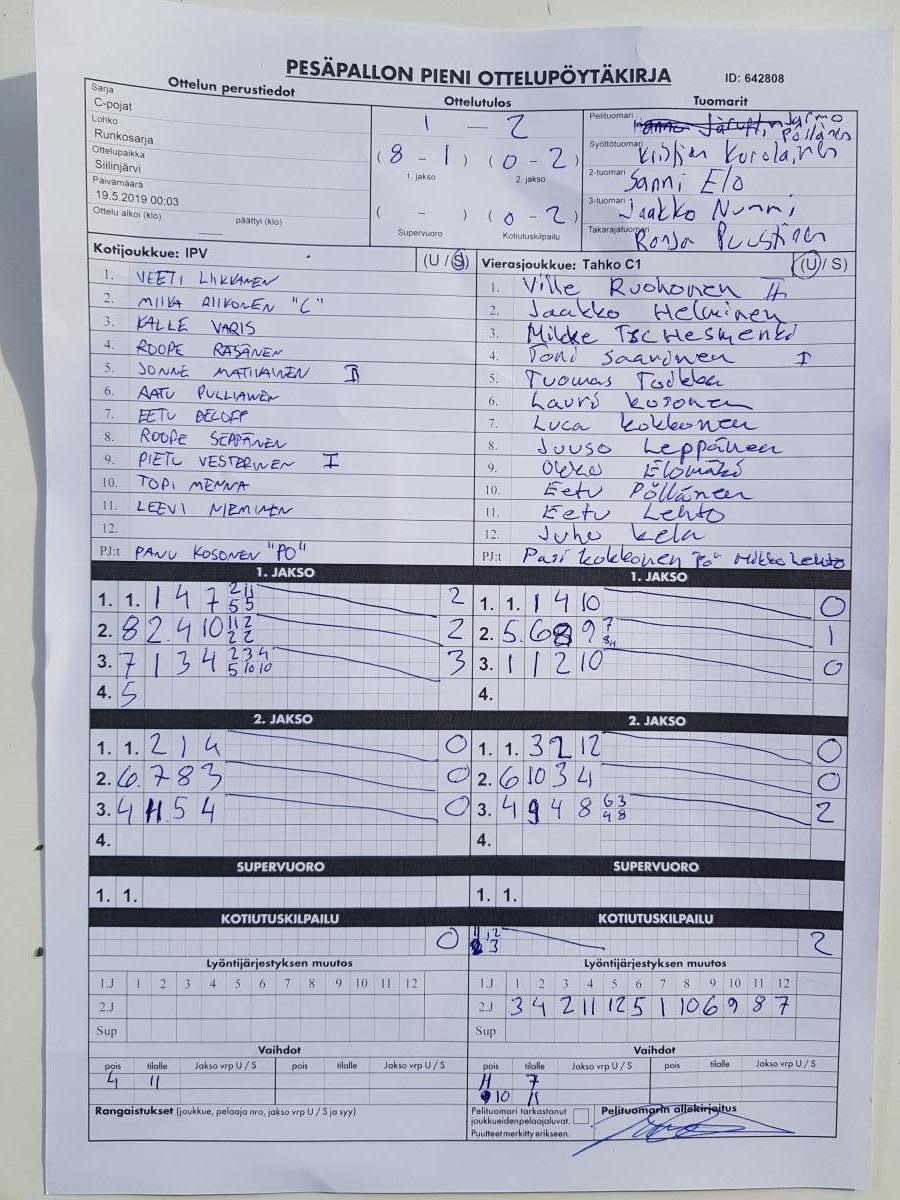 PESÄPALLON PIENI OTTELUPÖYTÄKIRJA
ID: 642808
Ottelun perustiedot
Sarja
C-pojat
Lohko
Runkosarja
Ottelupaikka
Siilinjärvi
Päivämäärä
19.5.2019 00:03
Ottelu alkoi (klo) päättyi (klo)
Ottelutulos
1 — 2
(8 - 1) (0 - 2)
1. jakso 2. jakso
( - ) (0 - 2)
Supervuoro Kotiutuskilpailu
Tuomarit
Pelituomari Jarmo Pöllänen
Syöttötuomari
2-tuomari Sanni Elo
3-tuomari Jaakko Nummi
Takarajatuomari Ronja Puustinen
Kotijoukkue: IPV (U / S)
1. VEETI LIIKKANEN
2. MIIKA RIIKONEN "C"
3. KALLE VARIS
4. ROOPE RÄSÄNEN
5. JONNE MATILAINEN II
6. AATU PULLIAINEN
7. EETU BELOFF
8. ROOPE SEPPÄNEN
9. PIETU VESTERINEN I
10. TOPI MENNA
11. LEEVI NIEMINEN
12.
PJ:t PANU KOSONEN "PO"
Vierasjoukkue: Tahko C1 (U / S)
1. Ville Ruohonen II
2. Jaakko Helminen
3. Mikke Tschesmenko
4. Toni Saarinen I
5. Tuomas Toikka
6. Lauri Kosonen
7. Luca Kokkonen
8. Juuso Leppänen
9. Okko Elomäki
10. Eetu Pöllänen
11. Eetu Lehto
12. Juho Kela
PJ:t Pasi Kokkonen Mikko Lehto
1. JAKSO
1. 1. 1 4 7 2 11 5 5 2
2. 8 2. 4 10 11 2 2 2 2
3. 7 1 3 4 2 3 4 5 10 10 3
4. 5
1. JAKSO
1. 1. 1 4 10 0
2. 5. 6 8 9 7 1
3. 1 1 2 10 0
4.
2. JAKSO
1. 1. 2 1 4 0
2. 6. 7 8 3 0
3. 4 11. 5 4 0
4.
2. JAKSO
1. 1. 3 2 12 0
2. 6 10 3 4 0
3. 4 9 4 8 6 3 4 8 2
4.
SUPERVUORO
1. 1.
SUPERVUORO
1. 1.
KOTIUTUSKILPAILU
0
KOTIUTUSKILPAILU
12
3
2
Lyöntijärjestyksen muutos
1.J 1 2 3 4 5 6 7 8 9 10 11 12
2.J
Sup
Lyöntijärjestyksen muutos
1.J 1 2 3 4 5 6 7 8 9 10 11 12
2.J 3 4 2 11 12 5 1 10 6 9 8 7
Sup
Vaihdot
pois tilalle Jakso vrp U / S pois tilalle Jakso vrp U / S
4 11
Vaihdot
pois tilalle Jakso vrp U / S pois tilalle Jakso vrp U / S
11 7
10 11
Rangaistukset (joukkue, pelaaja nro, jakso vrp U / S ja syy)
Pelituomari tarkastanut
joukkueiden pelaajaluvat.
Puutteet merkitty erikseen.
Pelituomarin allekirjoitus